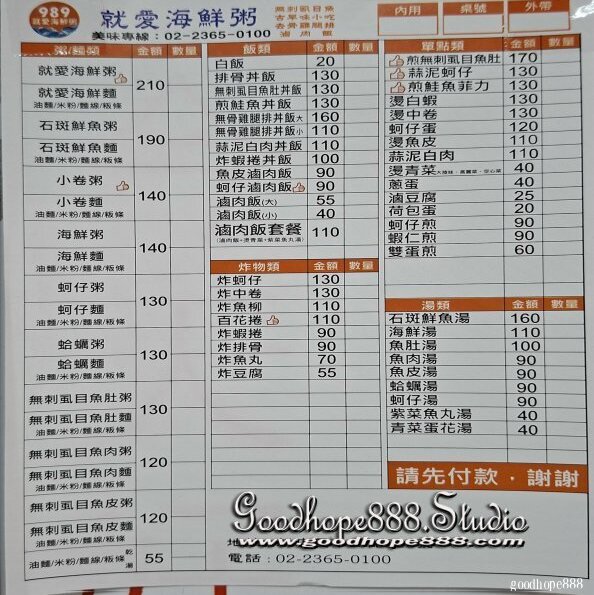 989
就愛海鮮粥
就愛海鮮粥
美味專線：02-2365-0100
無刺虱目魚
古早味小吃
去骨雞腿排
滷肉飯
內用 桌號 外帶
粥/麵類 金額 數量
就愛海鮮粥
就愛海鮮麵
油麵/米粉/麵線/粄條
210
石斑鮮魚粥
石斑鮮魚麵
油麵/米粉/麵線/粄條
190
小卷粥
小卷麵
油麵/米粉/麵線/粄條
140
海鮮粥
海鮮麵
油麵/米粉/麵線/粄條
140
蚵仔粥
蚵仔麵
油麵/米粉/麵線/粄條
130
蛤蠣粥
蛤蠣麵
油麵/米粉/麵線/粄條
130
無刺虱目魚肚粥
無刺虱目魚肚麵
油麵/米粉/麵線/粄條
130
無刺虱目魚肉粥
無刺虱目魚肉麵
油麵/米粉/麵線/粄條
120
無刺虱目魚皮粥
無刺虱目魚皮麵
油麵/米粉/麵線/粄條
120
油麵/米粉/麵線/粄條 乾 湯 55
飯類 金額 數量
白飯 20
排骨丼飯 130
無刺虱目魚肚丼飯 130
煎鮭魚丼飯 130
無骨雞腿排丼飯大 160
無骨雞腿排丼飯小 110
蒜泥白肉丼飯 110
炸蝦捲丼飯 100
魚皮滷肉飯 90
蚵仔滷肉飯 90
滷肉飯(大) 55
滷肉飯(小) 40
滷肉飯套餐 110
(滷肉飯+燙青菜+紫菜魚丸湯)
炸物類 金額 數量
炸蚵仔 130
炸中卷 130
炸魚柳 110
百花捲 110
炸蝦捲 90
炸排骨 90
炸魚丸 70
炸豆腐 55
單點類 金額 數量
煎無刺虱目魚肚 170
蒜泥蚵仔 130
煎鮭魚菲力 130
燙白蝦 130
燙中卷 130
蚵仔蛋 120
燙魚皮 110
蒜泥白肉 110
燙青菜 大陸妹、高麗菜、空心菜 40
蔥蛋 40
滷豆腐 25
荷包蛋 20
蚵仔煎 90
蝦仁煎 90
雙蛋煎 60
湯類 金額 數量
石斑鮮魚湯 160
海鮮湯 110
魚肚湯 100
魚肉湯 90
魚皮湯 90
蛤蠣湯 90
蚵仔湯 90
紫菜魚丸湯 40
青菜蛋花湯 40
請先付款．謝謝
Goodhope888.Studio
www.goodhope888.com
電話：02-2365-0100
goodhope888